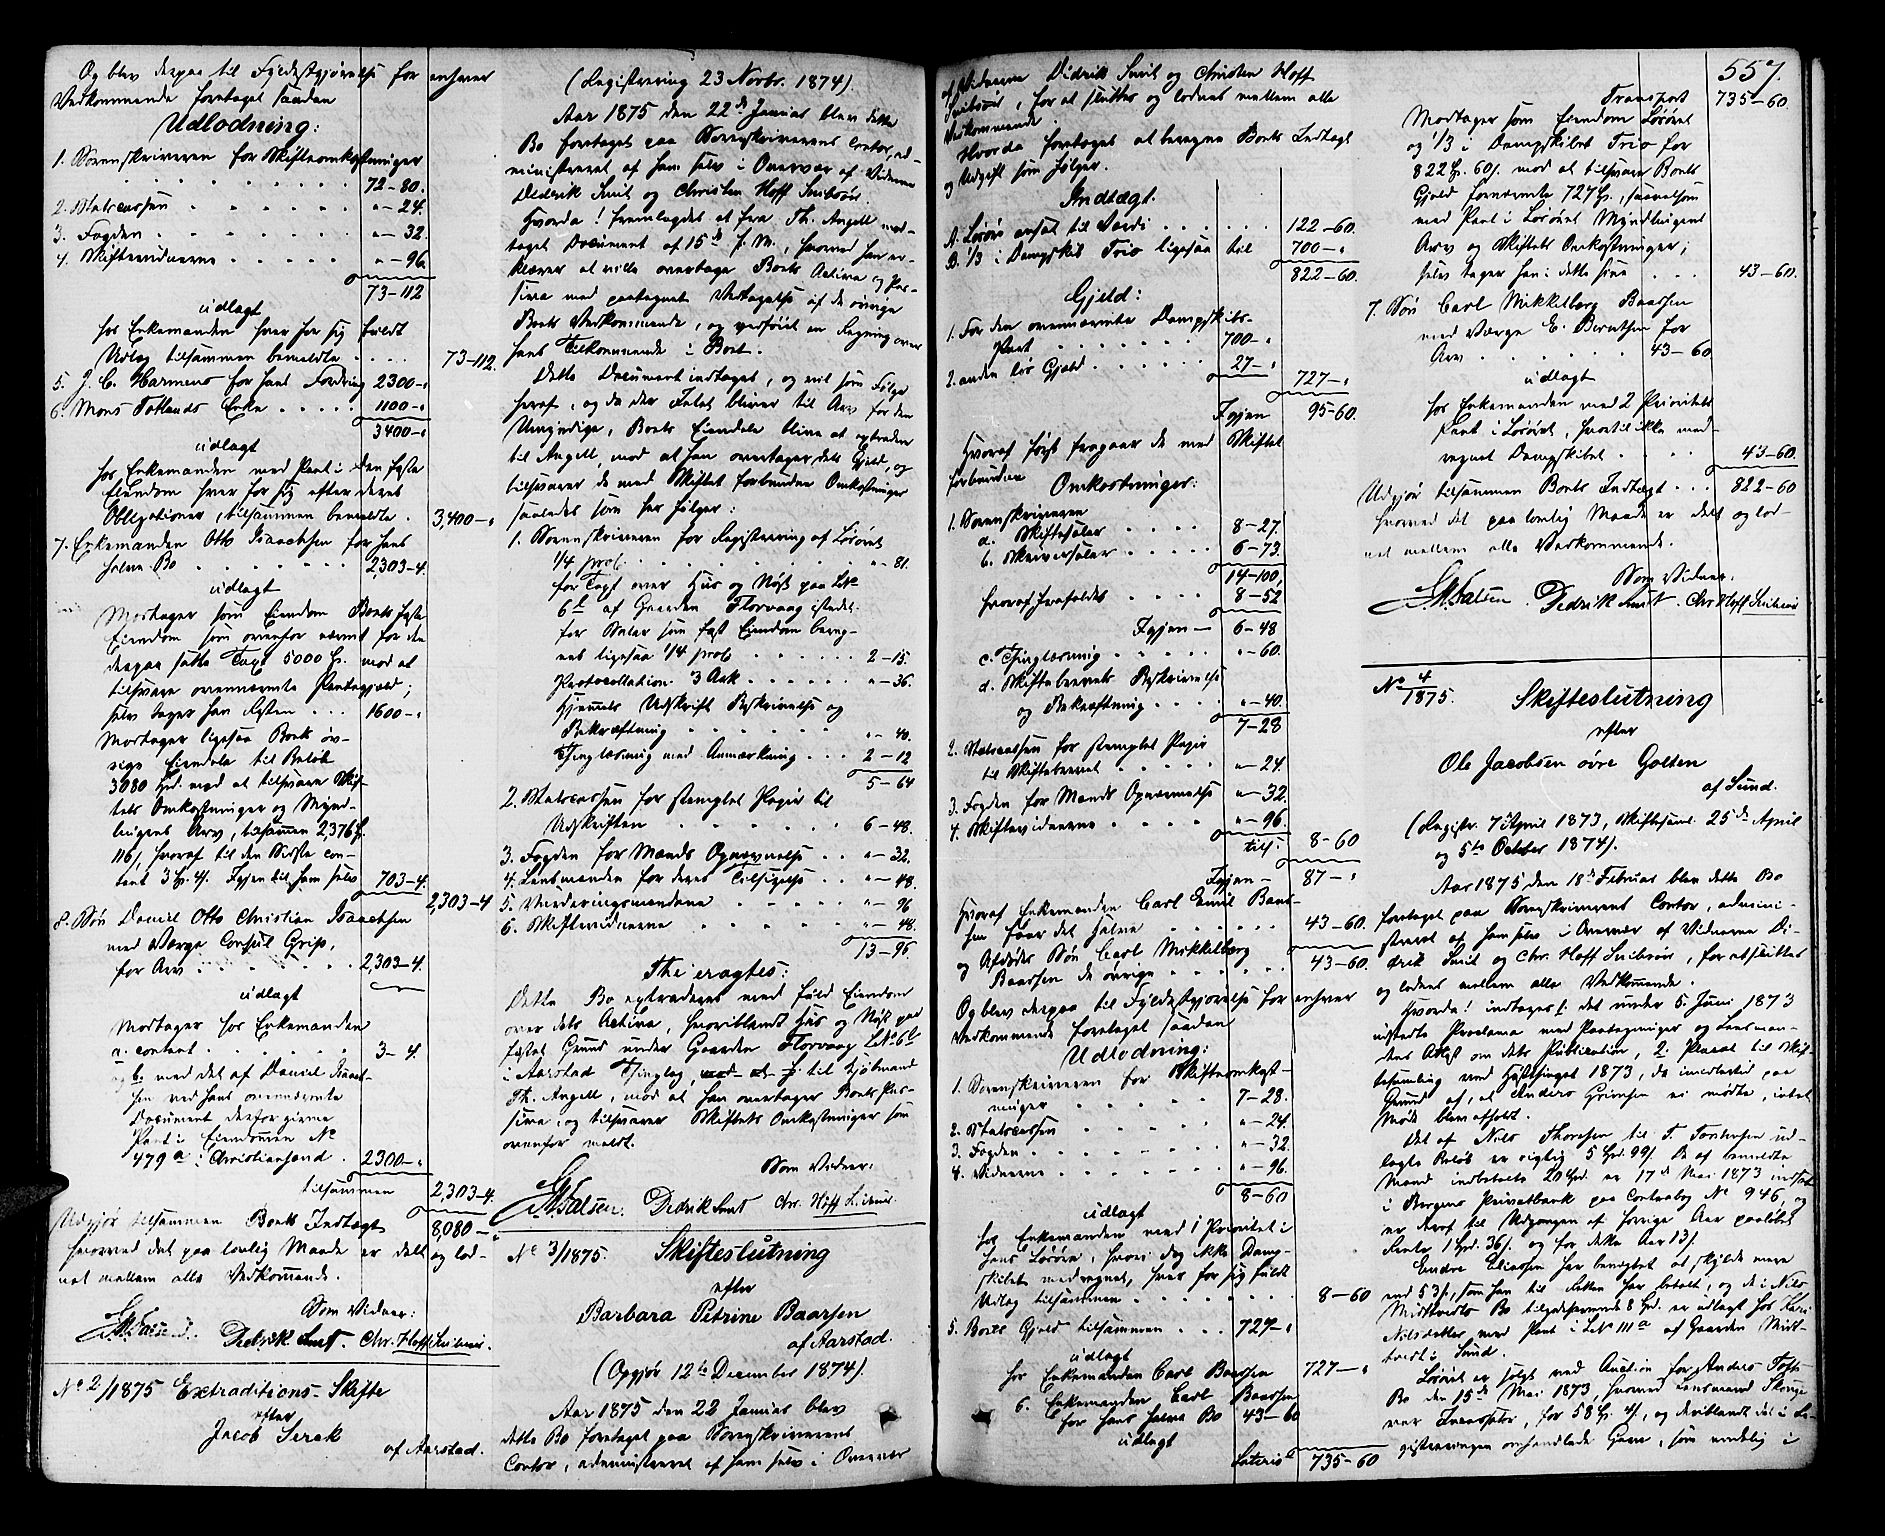 Og blev derpaa til Fyldestgjørelse for enhver
Vedkommende foretaget saadan
Udlodning:
1. Sorenskriveren for Skifteomkostninger
72-80.
2. Statscassen "-24.
3. Fogden "-32.
4. Skiftevidnerne "-96
73-112
udlagt
hos Enkemanden hver for sig fuldt
Udlæg tilsammen bemeldte 73-112.
5. J. C. Harmens for hans Fordring 2300-"
6. Mons Totlands Enke 1100-"
3400-"
udlagt
hos Enkemanden med Pant i den faste
Eiendom hver for sig efter deres
Obligationer, tilsammen bemeldte 3,400-"
7. Enkemanden Otto Isaachsen for hans
halve Bo 2,303-4.
udlagt
Modtager som Eiendom Boets faste
Eiendom som ovenfor nævnt for den
derpaa satte Taxt 5000 Spd. mod at
tilsvare ovennævnte Pantegjæld;
selv tager han Resten 1600-"
Modtager ligesaa Boets øv-
rige Eiendele til Beløb
3080 Spd. mod at tilsvare Skif-
tets Omkostninger og Mynd-
lingens Arv, tilsammen 2376 Sp.
116/, hvoraf til den Sidste con-
tant 3 Sp. 4/. Igjen til ham selv 703-4.
2,303-4
8. Søn Daniel Otto Christian Isaachsen
med Værge Consul Grip,
for Arv 2,303-4.
udlagt
Modtager hos Enkemanden
a. contant 3-4.
og b. med det af Daniel Isaach-
sen ved hans ovennævnte
Document derfor givne
Pant i Eiendommen No
479a i Christiansand 2300-"
tilsammen 2,303-4.
Udgjør tilsammen Boets Indtægt 8,080-"
hvorved det paa lovlig Maade er delt og lod-
net mellem alle Vedkommende.
Som Vidner:
Falsen. Didrik Smit Chr. Hoff Snibsøer.
No 2/1875 Extraditions-Skifte
efter
Jacob
af Aarstad.
(Registrering 23 Novbr. 1874).
Aar 1875 den 22de Januar blev dette
Bo foretaget paa Sorenskriverens Contor, ad-
ministreret af ham selv i Overvær af Vidnerne
Didrik Smit og Christen Hoff Snibsøer.
Hvorda! fremlagdes et fra Th. Angell mod-
taget Document af 15de d. M., hvorved han er-
klærer at ville overtage Boets Activa og Pas-
siva med paategnet Vedtagelse af de øvrige
Boets Vedkommende, og vedføiet en Regning over
hans Tilkommende i Boet.
Dette Document indtaget, og vil som Følge
heraf, og da der Intet bliver til Arv for den
Umyndige, Boets Eiendele blive at extradere
til Angell, mod at han overtager dets Gjeld, og
tilsvarer de med Skiftet forbundne Omkostninger
saaledes som her følger:
1. Sorenskriveren for Registrering af Løsøret
1/4 proC. "-81.
for Taxt over Hus og Nøst paa LNo
6b af Gaarden Florvaag istedet
for Salær som fast Eiendom bereg-
net ligesaa 1/4 proC 2-15.
Protocollation 3 Ark "-36.
Hjemmels Udskrift Beskrivelse og
Bekræftning "-40.
Thinglæsning med Anmærkning 2-12
5-64
2. Statscassen for stemplet Papir til
Udskriften 6-48.
3. Fogden for Mænds Opnævnelse "-32.
4. Lensmanden for deres Tilsigelse "-48.
5. Vurderingsmændene "-96
6. Skiftevidnerne "-48.
13-96
Thi eragtes:
Dette Bo extraderes med fuld Eiendom
over dets Activa, hvoriblandt Hus og Nøst paa
fæstet Grund under Gaarden Florvaag LNo 6b
i Aarstad Thinglag, til Kjøbmand
Th. Angell, mod at han overtager Boets Pas-
siva, og tilsvarer Skiftets Omkostninger som
ovenfor meldt.
Som Vidner:
Falsen. Didrik Smit Chr. Hoff Snibsøer.
No 3/1875. Skifteslutning
efter
Barbara Petrine Baarsen
af Aarstad.
(Opgjør 12te December 1874).
Aar 1875 den 22 Januar blev
dette Bo foretaget paa Sorenskriverens
Contor, administreret af ham selv i Overvær
af Vidnerne Didrik Smit og Christen Hoff
Snibsøer, for at sluttes og lodnes mellem alle
Vedkommende.
Hvorda foretoges at beregne Boets Indtægt
og Udgift som følger.
Indtægt.
A. Løsøre ansat til Værdi 122-60.
B. 1/3 i Dampskibet Trio ligesaa til 700-"
822-60.
Gjeld:
1. For den ovennævnte Dampskibs-
Part 700-"
2. anden løs Gjeld 27-"
727-"
Igjen 95-60.
Hvoraf først fragaar de med Skiftet
forbundne Omkostninger:
1. Sorenskriveren
a. Skiftesalær 8-27.
b. Skriversalær 6-73.
14-100.
hvoraf frafaldes 8-52
Igjen 6-48
c. Thinglæsning "-60.
d. Skiftebrevets Beskrivelse
og Bekræftning "-40.
7-28
2. Statscassen for stemplet Papir
til Skiftebrevet "-24.
3. Fogden for Mænds Opnævnelse "-32.
4. Skiftevidnerne "-96.
tils. 8-60
Igjen 87-"
Hvoraf Enkemanden Carl Emil Baar-
sen faar det halve 43-60.
og Afdødes Søn Carl Mikkelberg
Baarsen de øvrige 43-60.
Og blev derpaa til Fyldestgjørelse for enhver
Vedkommende foretaget saadan
Udlodning:
1. Sorenskriveren for Skifteomkost-
ninger 7-28.
2. Statscassen "-24.
3. Fogden "-32.
4. Vidnerne "-96.
8-60
udlagt
hos Enkemanden med 1 Prioritet i
hans Løsøre, hvori dog ikke Damp-
skibet medregnet, hver for sig fuldt
Udlæg tilsammen 8-60
5. Boets Gjeld tilsammen 727-"
udlagt
hos Enkemanden Carl Baarsen 727-"
6. Enkemanden Carl Baarsen
for hans halve Bo 43-60
udlagt
Lateris 735-60
557.
Transport 735-60.
Modtager som Eiendom Løsøret
og 1/3 i Dampskibet Trio for
822 Sp. 60/. mod at tilsvare Boets
Gjeld fornævnte 727 Sp., saavelsom
med Pant i Løsøret Myndlingens
Arv og Skiftets Omkostninger;
selv tager han i dette sine 43-60.
7. Søn Carl Mikkelberg Baarsen
med Værge E. Berntsen for
Arv 43-60
udlagt
hos Enkemanden med 2 Prioritets
Pant i Løsøret, hvortil ikke med-
regnet Dampskibet 43-60.
Udgjør tilsammen Boets Indtægt 822-60
hvorved det paa lovlig Maade er delt og lod-
net mellem alle Vedkommende.
Som Vidner:
Falsen. Didrik Smit. Chr. Hoff Snibsøer
No 4/1875. Skifteslutning
efter
Ole Jacobsen øvre Golten
af Sund.
(Registr. 7 April 1873, Skiftesaml. 25de April
og 5te October 1874).
Aar 1875 den 18de Februar blev dette Bo
foretaget paa Sorenskriverens Contor, admini-
streret af ham selv i Overvær af Vidnerne Di-
drik Smit og Chr. Hoff Snibsøer, for at sluttes
og lodnes mellem alle Vedkommende.
Hvorda! indtages: det under 5 Juni 1873
udstedte Proclama med Paategninger og Lensman-
dens Attest om dets Publication, 2. Placat til Skif-
tesamling ved Høstthinget 1873, da imidlertid paa
Grund af, at Anders Grimsen ei mødte, intet
Møde blev afholdt.
Det af Nils Thoresen til T. Torstensen ud-
lagte Beløb er rigtig 5 Spd. 99/. De af bemeldte
Mand indbetalte 20 Spd. er 17de Mai 1873 indsat
i Bergens Privatbank paa Contrabog No 946, og
er deraf til Udgangen af forrige Aar paaløbet
Rente 1 Spd. 36/. og for dette Aar 13/.
Endre Eliassen har benægtet at skylde mere
end 53/., som han til Retten har betalt, og de i Nils
Midttveits Bo tilgodehavende 8 Spd. er udlagt hos Kari
Nilsdatter med Pant i LNo 111a af Gaarden Midt-
tveit i Sund.
Løsøret er solgt ved Auction for Anders Tofte
Bo den 15de Mai 1873, hvorved Lensmand Skonge
var Incassator, for 58 Sp. 4/., og deriblandt det i Re-
gistreringen omhandlede Garn, som endelig i